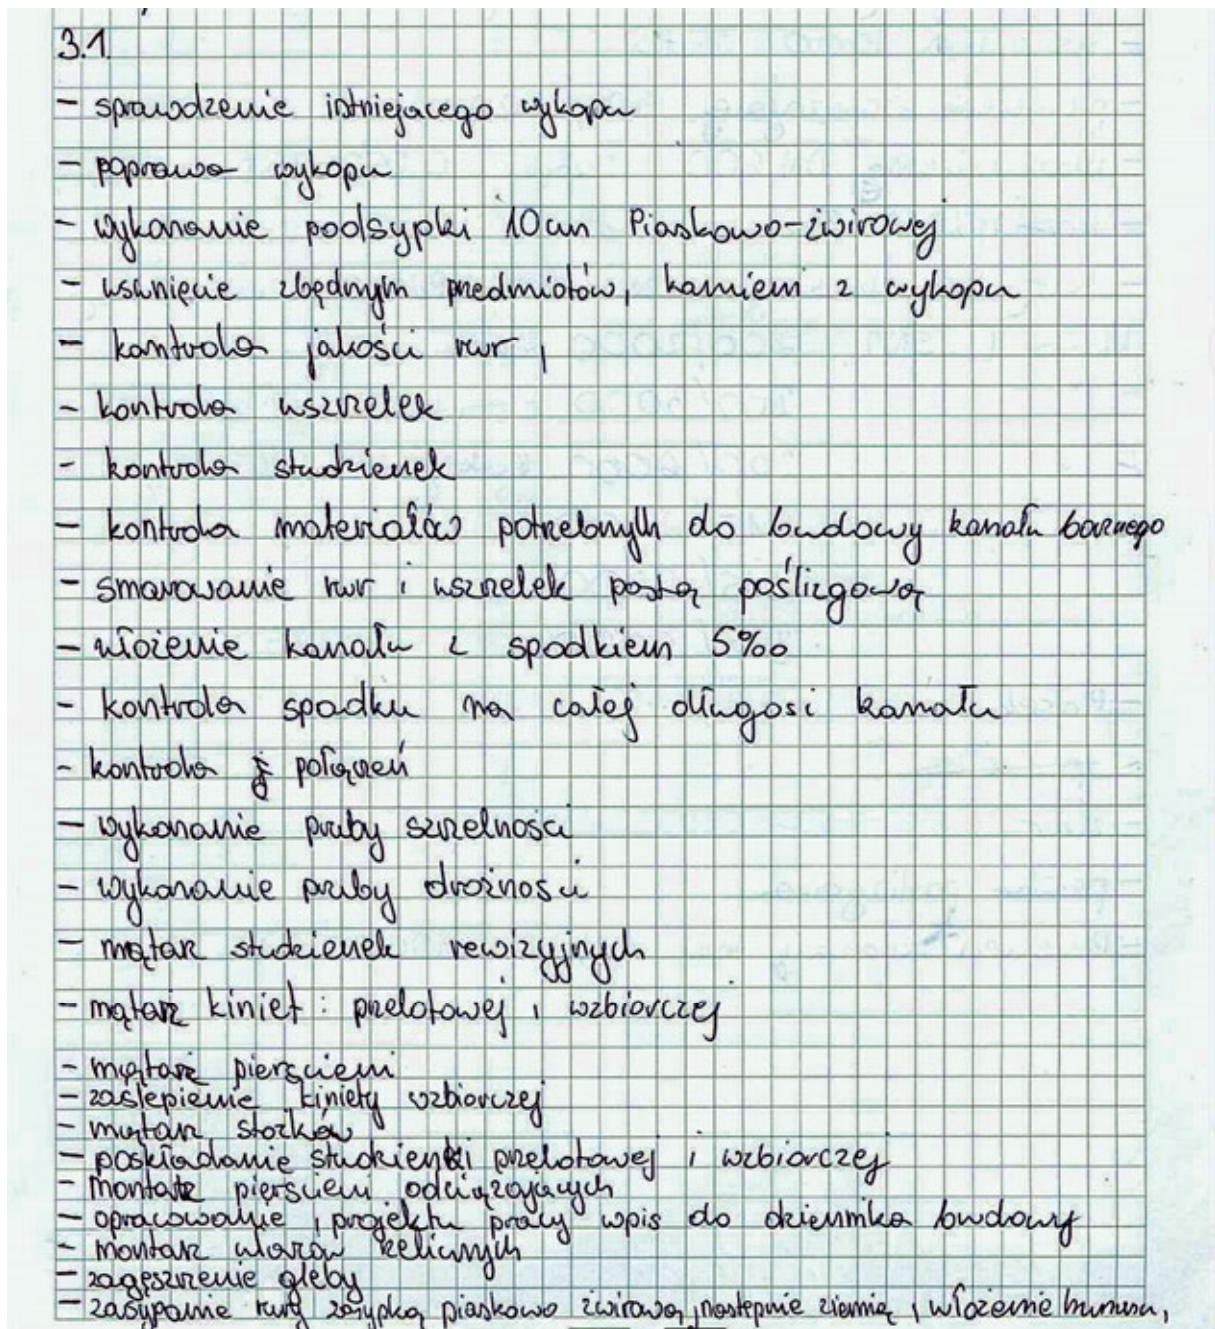 3.1.
- sprawdzenie istniejacego wykopu
- poprawa wykopu
- wykonanie podsypki 10cm Piaskowo-żwirowej
- usunięcie zbędnym przedmiotów, kamieni z wykopu
- kontrola jakości rur,
- kontrola uszczelek
- kontrola studzienek
- kontrola materiałów potrzebnych do budowy kanału bocznego
- smarowanie rur i uszczelek pastą poślizgową
- włożenie kanału z spadkiem 5‰
- kontrola spadku na całej długosi kanału
- kontrola połączeń
- wykonanie pruby szczelności
- wykonanie pruby drożnosci
- mątaż studzienek rewizyjnych
- mątaż kiniet: przelotowej i wzbiorczej
- mątaż pierscieni
- zaslepienie kiniety wzbiorczej
- mątaż stożków
- poskładanie studzienki przelotowej i wzbiorczej
- montaż pierscieni odciązających
- opracowanie, projektu pracy wpis do dziennika budowy
- montaż włazów żeliwnych
- zagęszczenie gleby
- zasypanie rury zasypką piaskowo żwirową, następnie ziemią, włożenie humusu,